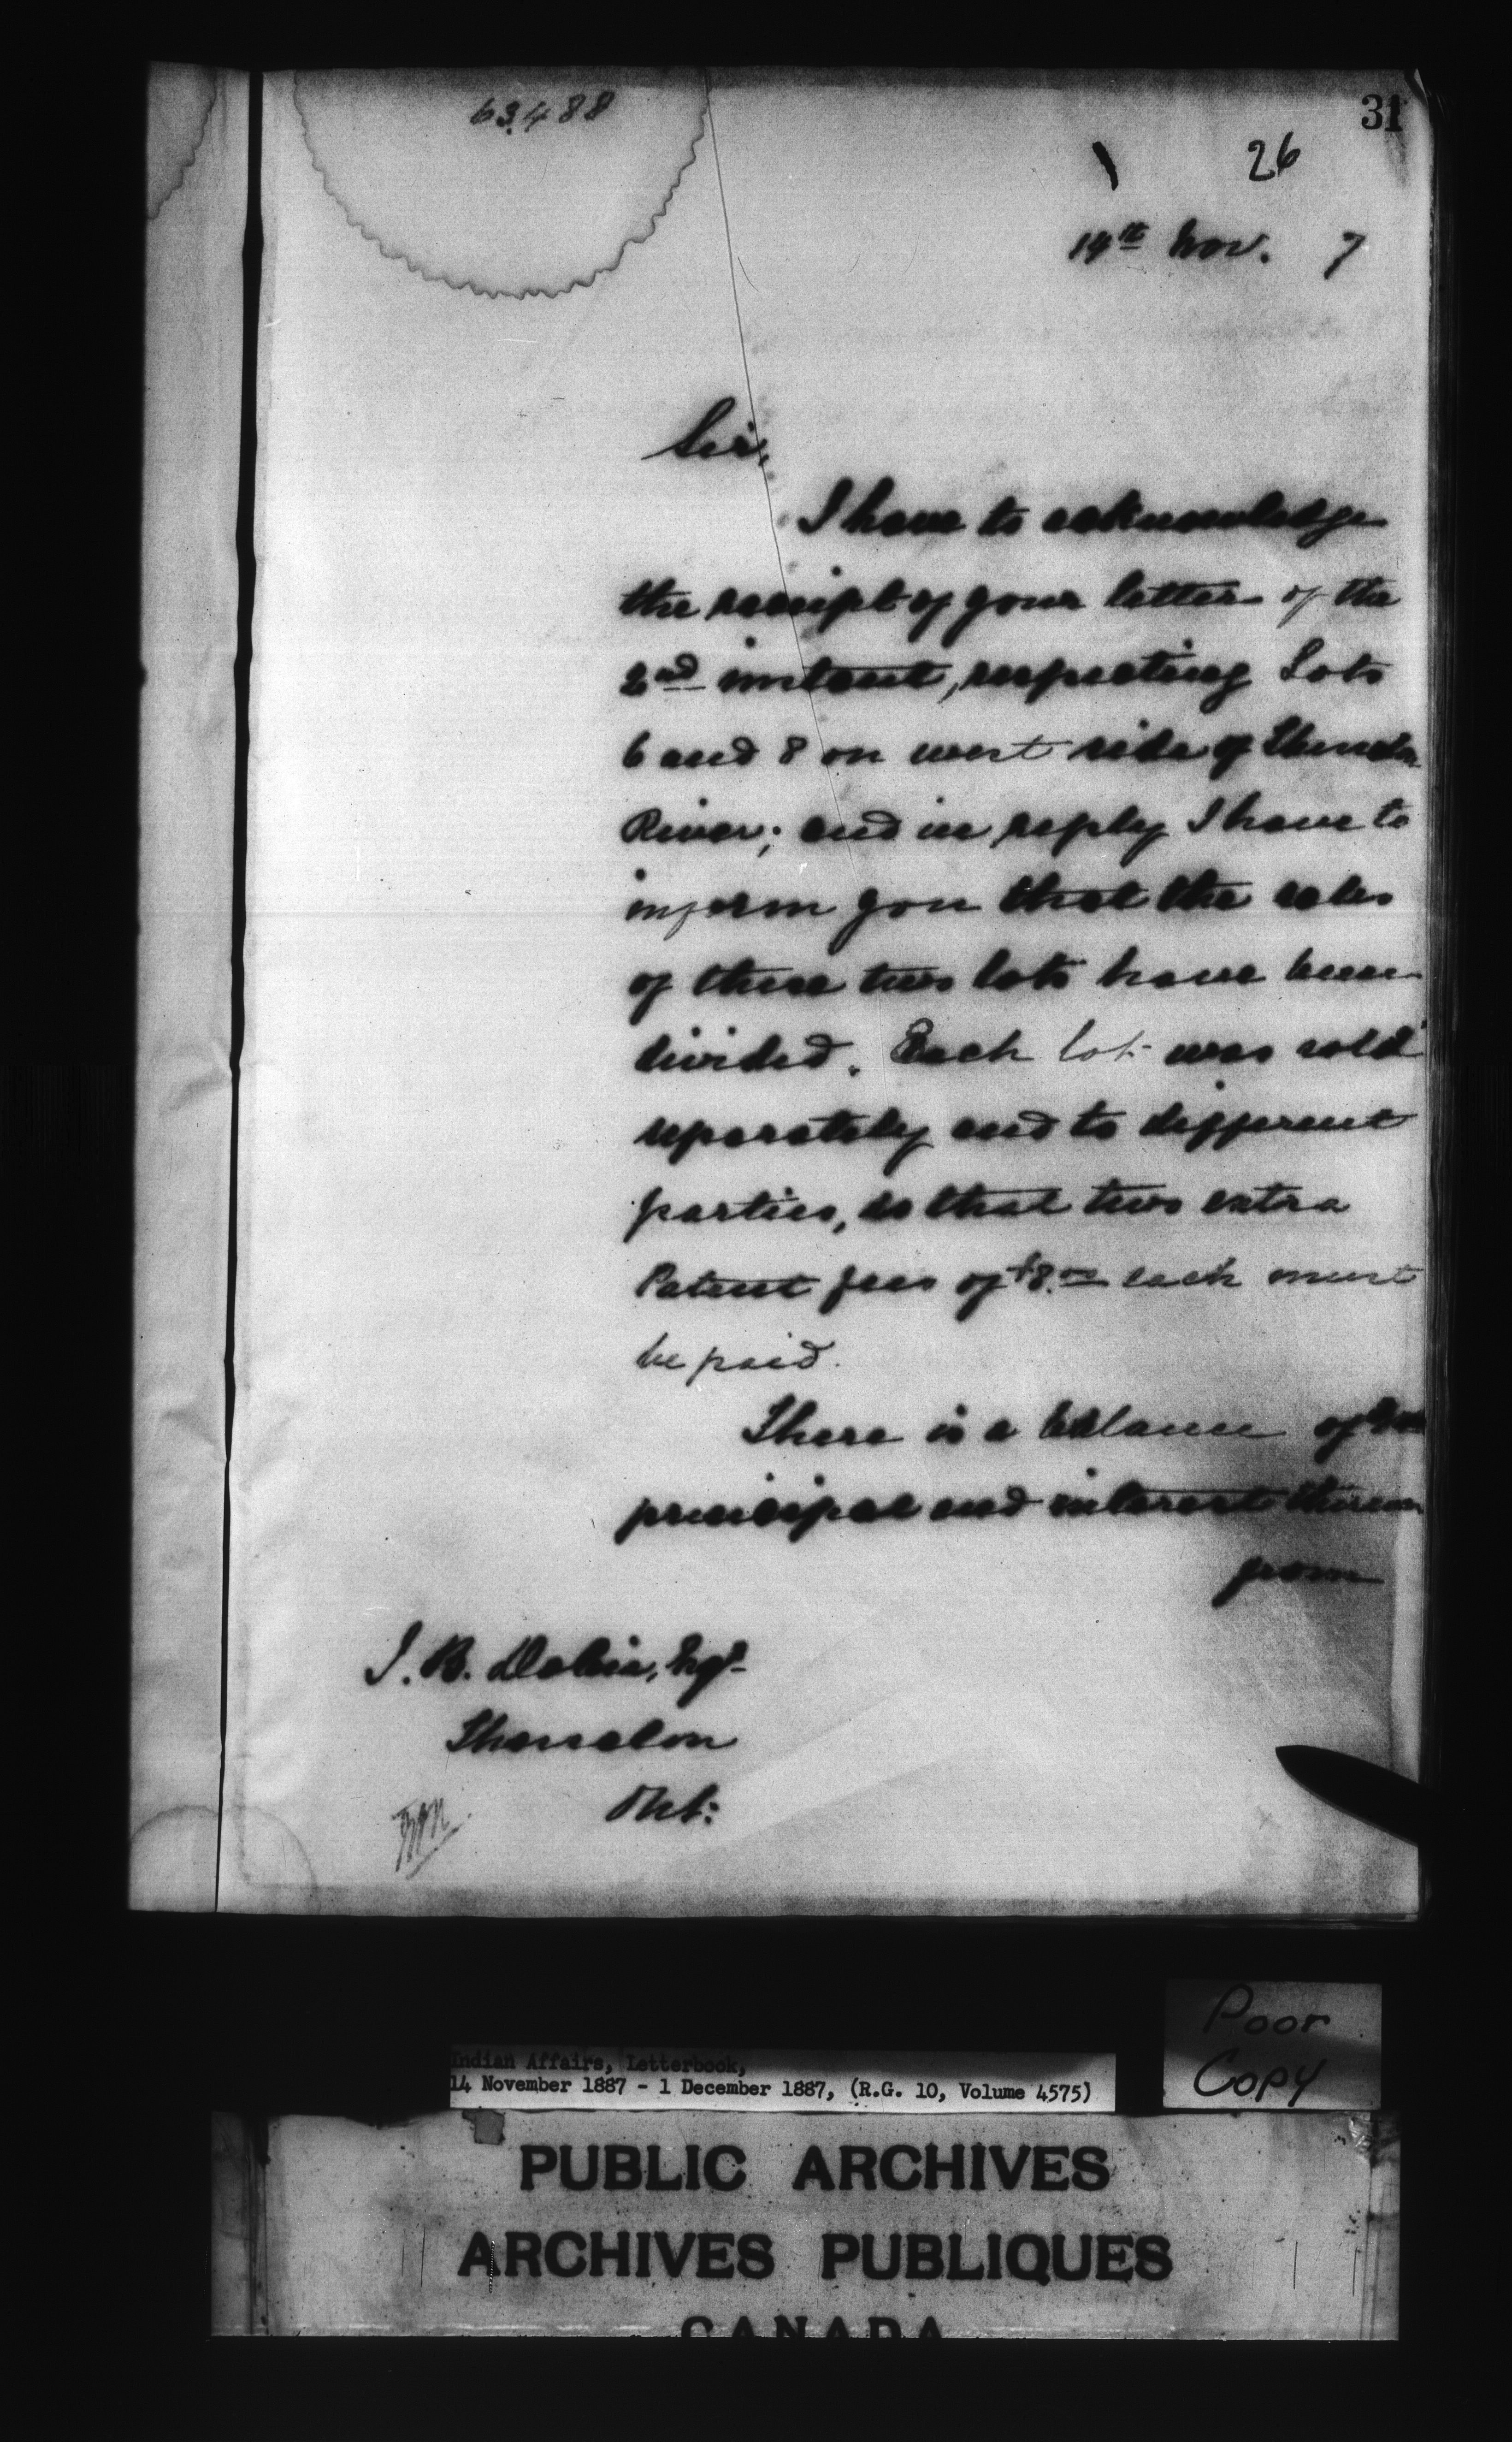 63.488
31
26
14th Nov. 7
Sir,
I have to acknowledge
the receipt of your letter of the
2nd instant, respecting Lots
6 and 8 on west side of
River; and in reply I have to
inform you that the sales
of these two lots have been
divided. Each lot was sold
separately and to different
parties, so that two extra
Patent fees of $8.00 each must
be paid.
There is a balance of
principal and interest thereon
from
J. B. Dobie, Esqr
Thessalon
Ont:
Poor
Copy
Indian Affairs, Letterbook,
14 November 1887 - 1 December 1887, (R.G. 10, Volume 4575)
PUBLIC ARCHIVES
ARCHIVES PUBLIQUES
CANADA